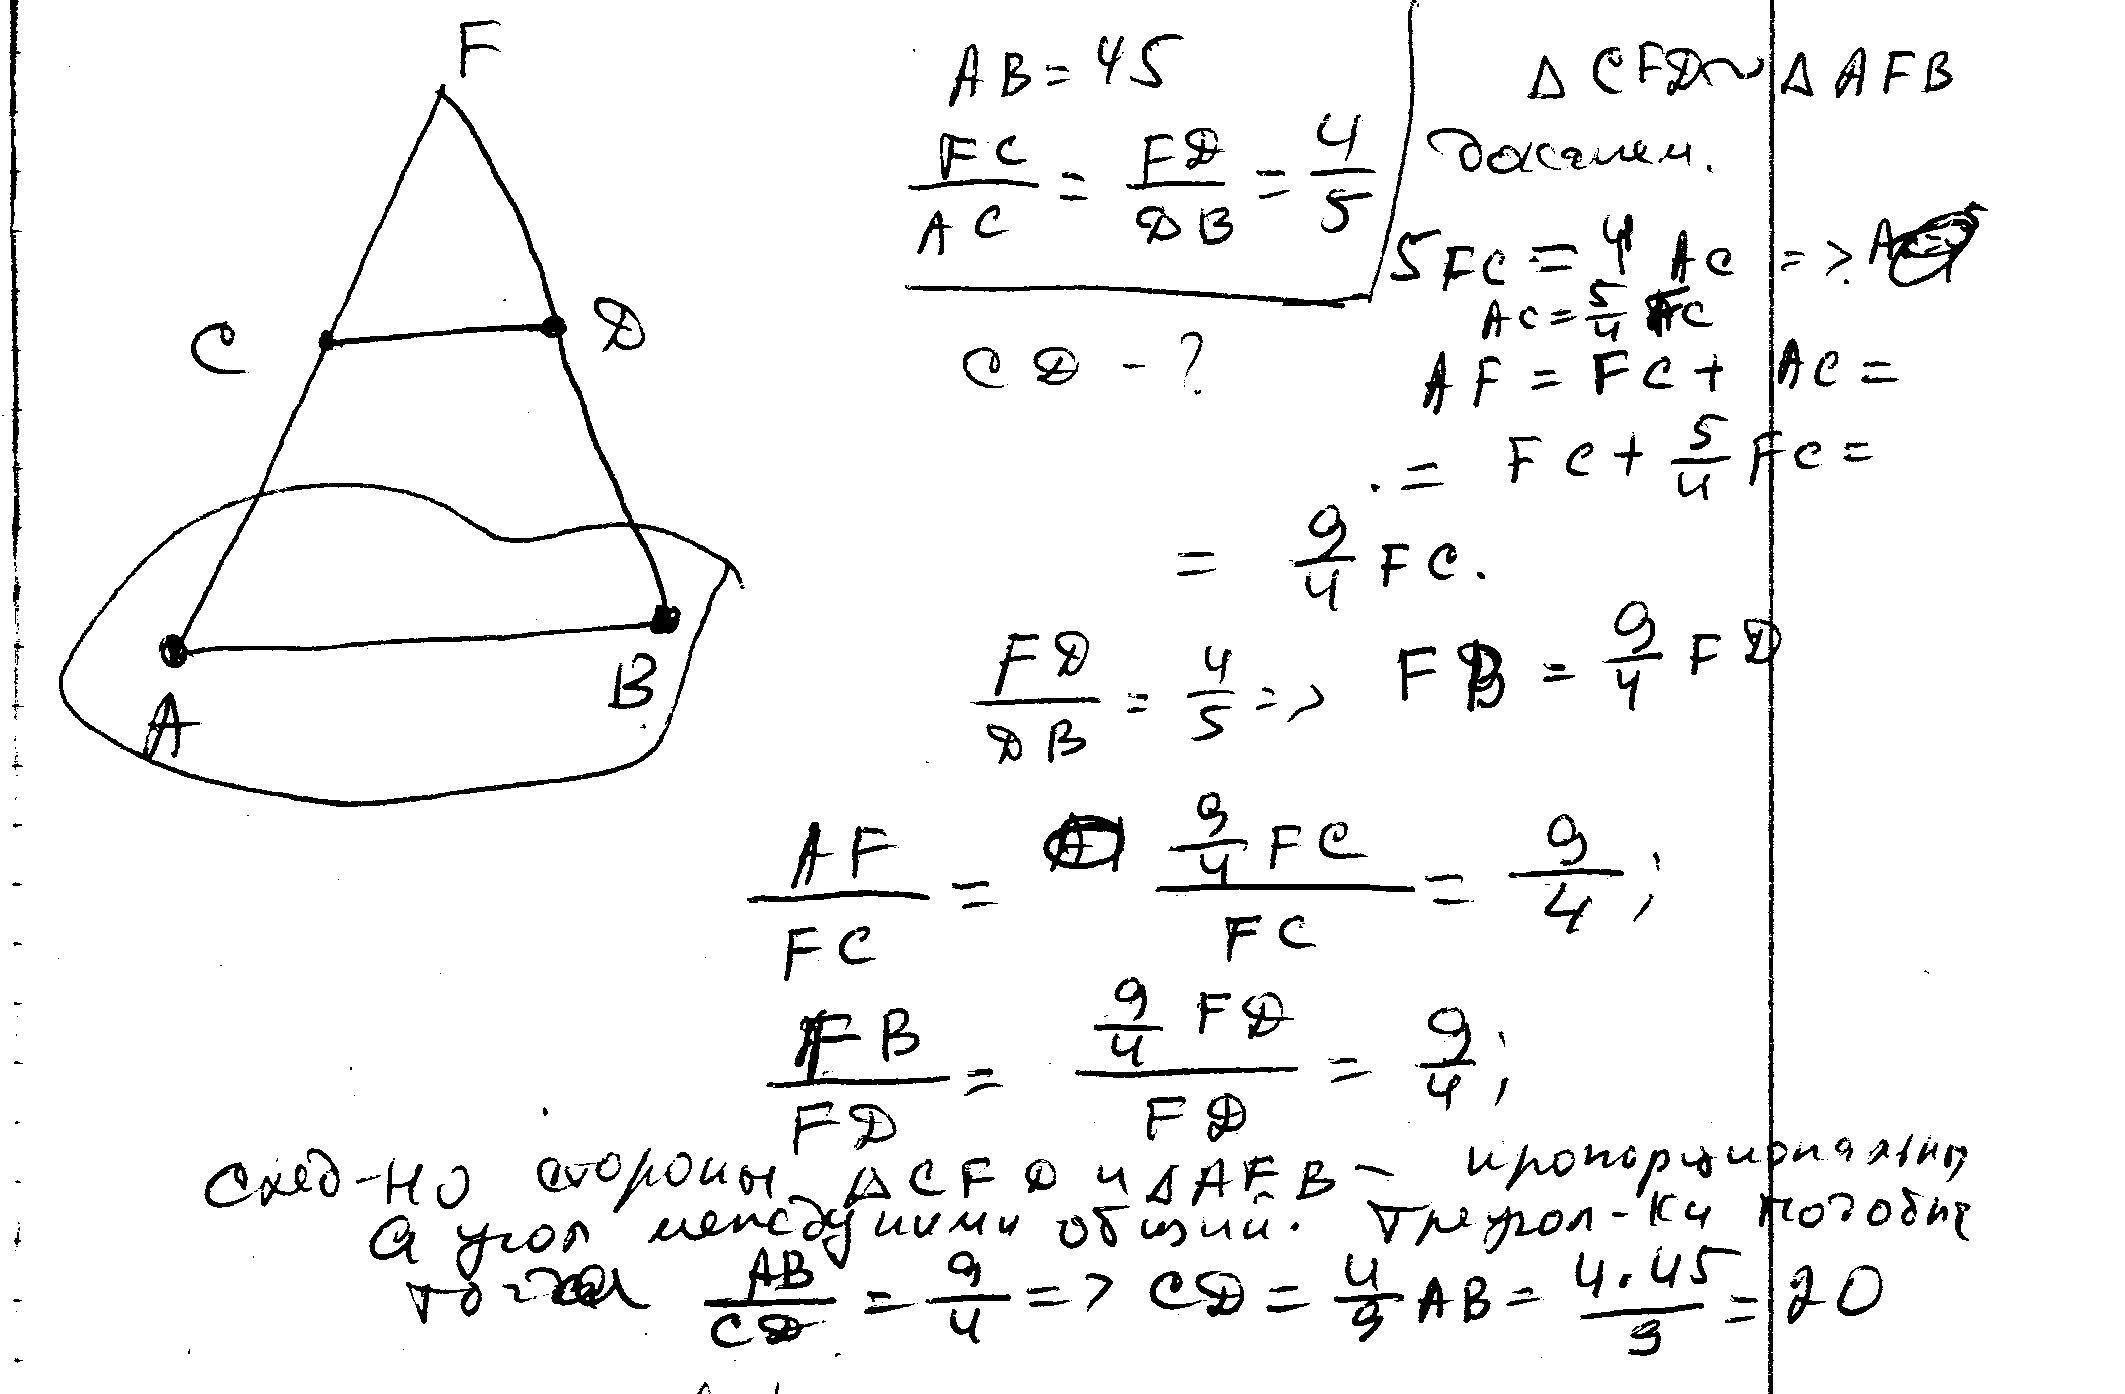 F
C
D
A
B
AB = 45
FC/AC = FD/DB = 4/5
CD - ?
Δ CFD ~ Δ AFB
докажем.
5FC = 4 AC =>
AC = 5/4 FC
AF = FC + AC =
= FC + 5/4 FC =
= 9/4 FC.
FD/DB = 4/5 => FB = 9/4 FD
AF/FC = 9/4 FC / FC = 9/4;
FB/FD = 9/4 FD / FD = 9/4;
След-но стороны ΔCFD и ΔAFB - пропорциональны
а угол между ними общий. Треугол-ки подобны
тогда AB/CD = 9/4 => CD = 4/9 AB = 4·45/9 = 20